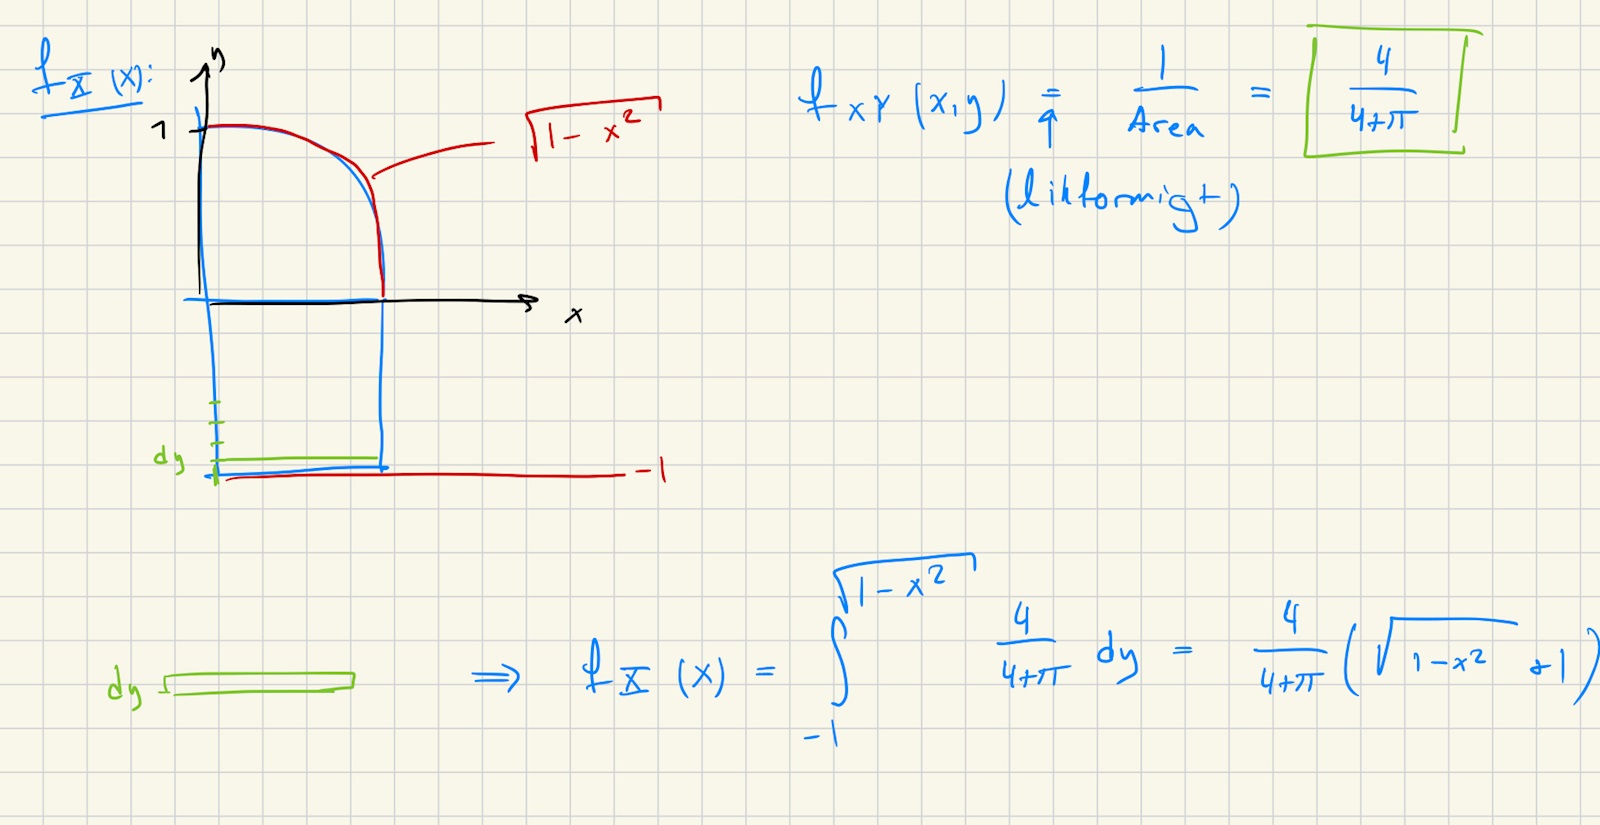 f_X (x):
y
1
√(1 - x²)
x
dy
-1
f_XY (x,y) = 1/Area = 4/(4+π)
↑
(likformigt)
dy
⇒ f_X (x) = ∫_{-1}^{√(1-x²)} 4/(4+π) dy = 4/(4+π) (√(1-x²) +1)